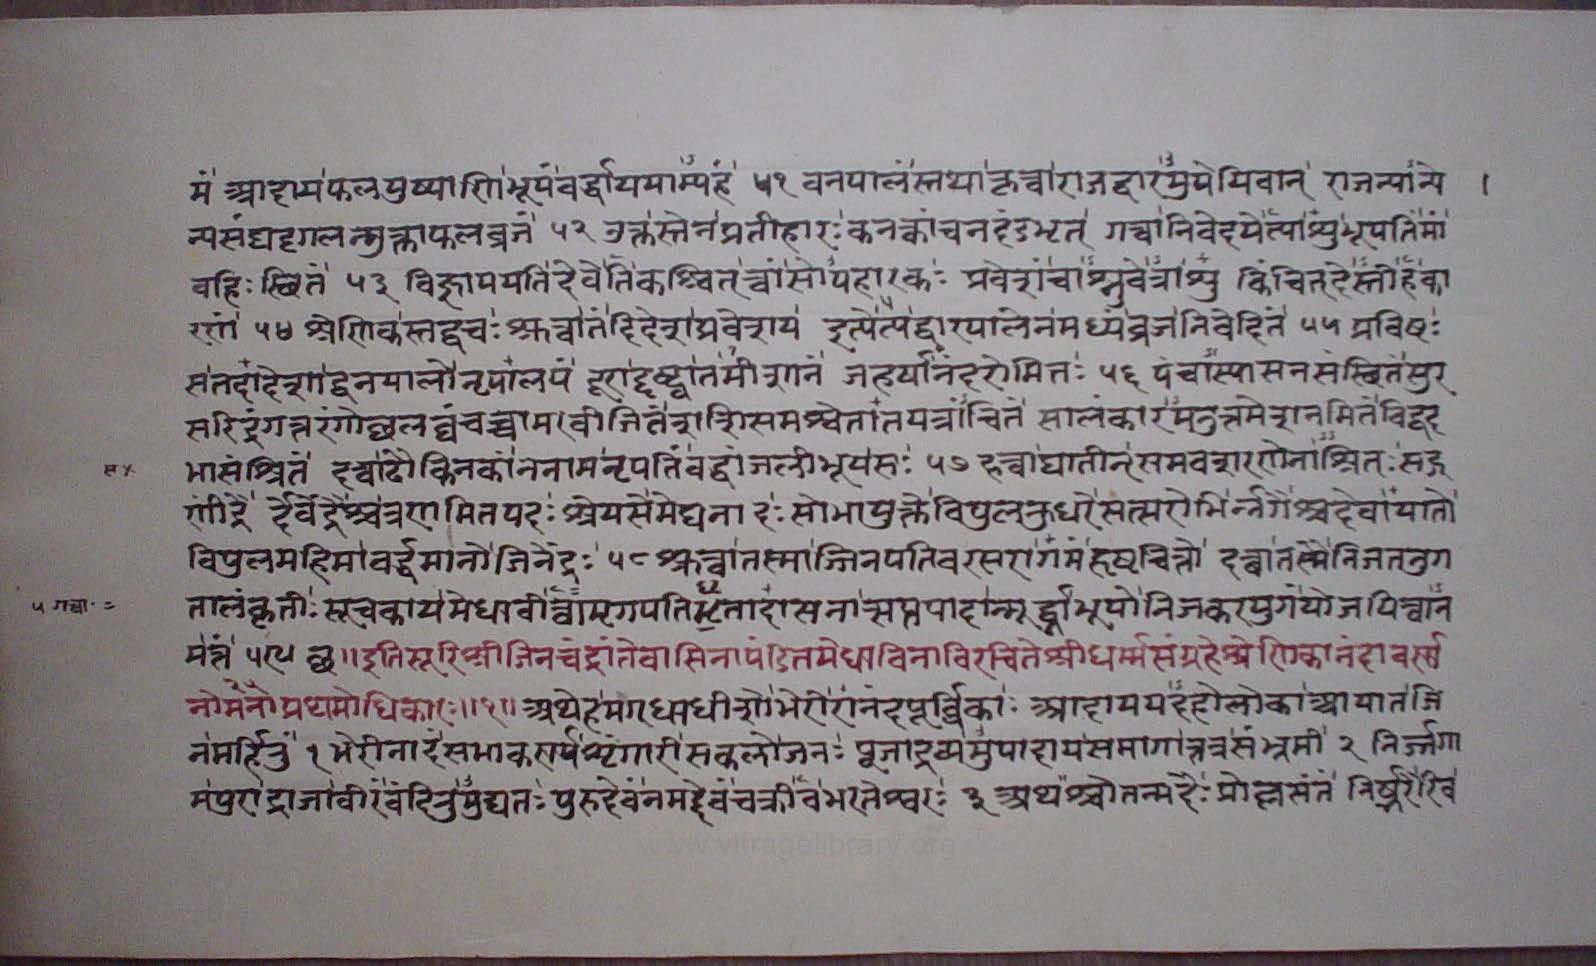 मं आदाय फलपुष्पाणि भूपं वर्द्धापयाम्यहं ५१ वनपालस्तथा कृत्वा राजद्वारमुपेयिवान् राजन्यान्ये
न्यसंघट्टगलन्मुक्ताफलव्रजं ५२ उक्तस्तेन प्रतीहारः कनकांचनदंडभृत् गत्वा निवेदयेत्याशु भूपतिं मां
वहिः स्थितं ५३ विज्ञापयति देवेति कश्चित् सोपहारकः प्रवेशं किंचित्
रणं ५४ श्रेणिकस्तद्वचः श्रुत्वा तं हि देशप्रवेशय इत्येत्य द्वारपालेन मध्यं व्रज निवेदितं ५५ प्रविष्टः
स तदादेशाद्वनपालो नृपालयं दूराद्दृष्ट्वा तमीशानं जहर्षानंदरोमितः ५६ पंचास्यासनसंस्थितं सुर
सरिद्रंगत्तरंगोच्छलच्चंचच्चामरवीजितं शशिसमश्वेतातपत्रांचितं सालंकारमनुत्तमेशनमितं विद्वद्
भासंश्रितं दत्वा ढौकनिकां ननाम नृपतिं बद्धांजलीभूय सः ५७ हत्वा घातीन् समवशरणेनाश्रितः सद्ग
णींद्रै र्देवेंद्रैश्च त्रणमितपदः श्रेयसे मेघनादः सोभायुक्ते विपुलकुधरे सत्सरोभिर्न्नगैश्च देवायातो
विपुलमहिमा वर्द्धमानो जिनेंद्रः ५८ श्रुत्वा तस्माज्जिनपतिवरसरागमं हृष्टचित्तो दत्वा तस्मै निजतनुग
तालंकृतीः सूचकाय मेधावी मृगपतिभृतादासनात्सप्तपादान्मूर्द्ध्ना भूपो निजकरयुगं योजयित्वा न
मंत्तं ५९ छ॥ इति सूरिश्रीजिनचंद्रांतेवासिना पंडितमेधाविना विरचिते श्रीधर्म्मसंग्रहे श्रेणिकानंदावर्स्स
नो प्रथमोधिकारः॥१॥ अथेह मगधाधीशो भेरीरानंदपूर्व्विकाः आदापयदहो लोका आयात जि
नमर्हितुं १ भेरीनादं समाकर्ण्य शृंगारी सकलो जनः पूजाद्रव्यमुपादाय समागात्तत्र संभ्रमी २ निर्ज्जगा
म पुराद्राजा वीरं वंदितुमुद्यतः पुरुदेवं नमद्देवं चक्रीव भरतेश्वरः ३ अथ श्चोतन्मदैः प्रोल्लसंतं निर्झरैरिव
५ गत्वा =
www.vitragelibrary.org